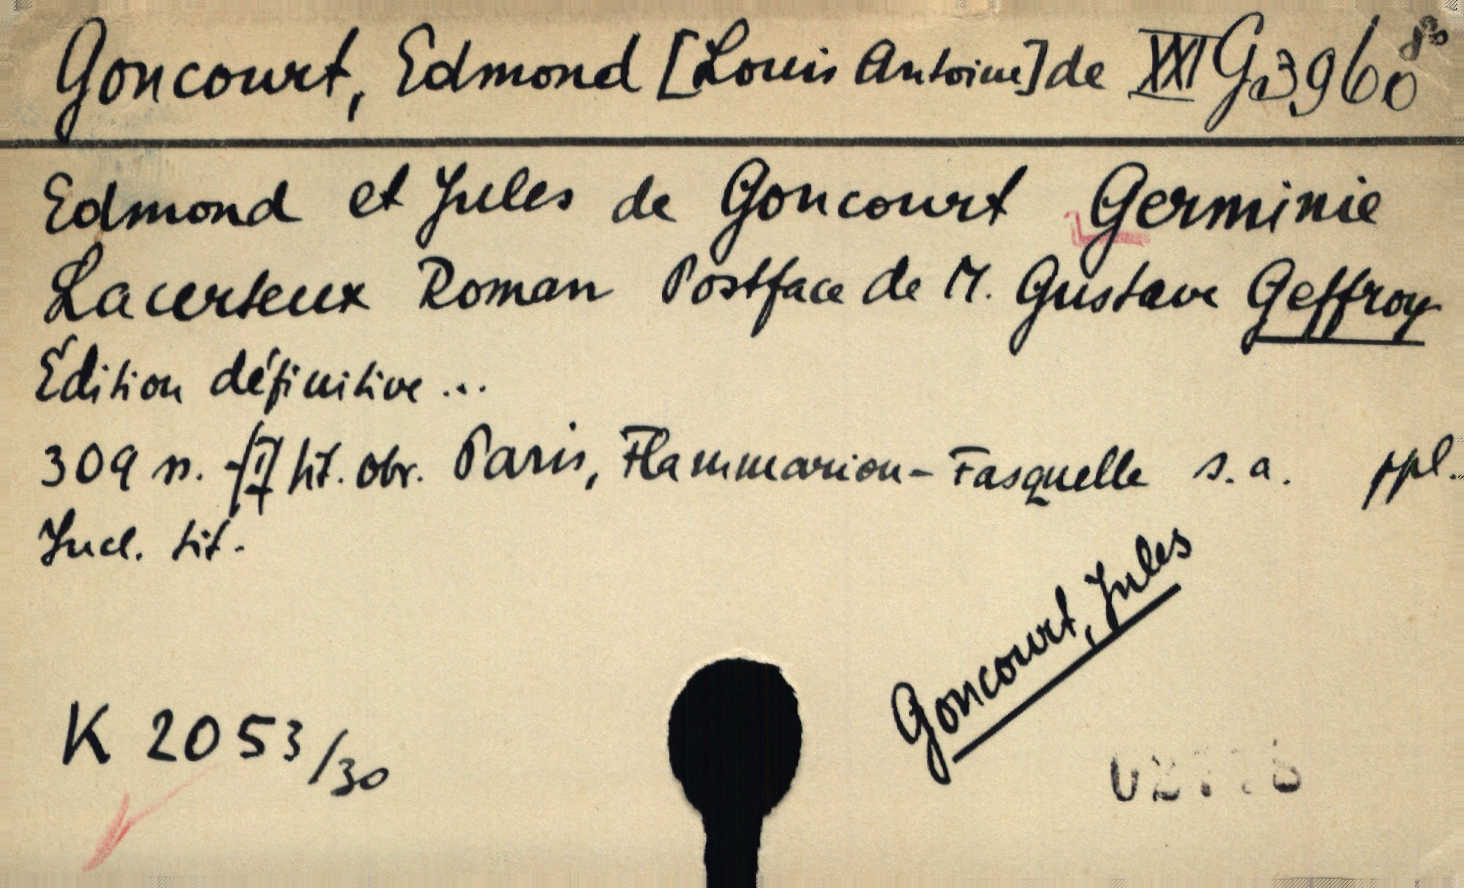 Goncourt, Edmond [Louis Antoine] de XXI G 3960
Edmond et Jules de Goncourt Germinie
Lacerteux Roman Postface de M. Gustave Geffroy
Édition définitive ...
309 n. +[I] lit. obr. Paris, Flammarion-Fasquelle s.a. ppl.
Incl. tit.
Goncourt, Jules
K 2053/30